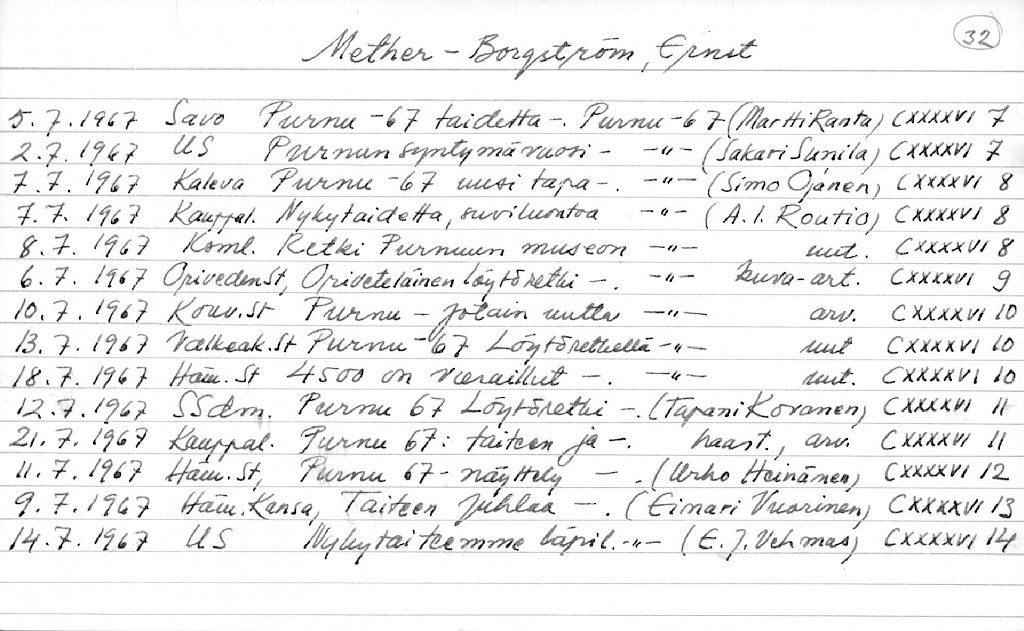 32
Mether-Borgström, Ernst
5.7.1967 Savo Purnu-67 taidetta-. Purnu-67 (Martti Ranta) CXXXXVI 7
2.7.1967 US Purnun syntymävuosi - -"- (Sakari Sunila) CXXXXVI 7
7.7.1967 Kaleva Purnu-67 uusi tapa-. -"- (Simo Ojanen) CXXXXVI 8
7.7.1967 Kauppal. Nykytaidetta, suviluontoa -"- (A.I. Routio) CXXXXVI 8
8.7.1967 Koml. Retki Purnuun museon -"- uut. CXXXXVI 8
6.7.1967 Oriveden St, Oriveteläinen löytöretki -. -"- kuva-art. CXXXXVI 9
10.7.1967 Kouv.St Purnu - jotain uutta -"- arv. CXXXXVI 10
13.7.1967 Valkeak.St Purnu-67 Löytöretkellä -"- uut CXXXXVI 10
18.7.1967 Häm.St 4500 on vieraillut -. -"- uut. CXXXXVI 10
12.7.1967 SSdm. Purnu 67 Löytöretki -. (Tapani Kovanen) CXXXXVI 11
21.7.1967 Kauppal. Purnu 67: taiteen ja -. haast., arv. CXXXXVI 11
11.7.1967 Häm.St, Purnu 67-näyttely - . (Urho Heinänen) CXXXXVI 12
9.7.1967 Häm.Kansa, Taiteen juhlaa -. (Eimari Vuorinen) CXXXXVI 13
14.7.1967 US Nykytaiteemme läpil. -"- (E.J. Vehmas) CXXXXVI 14